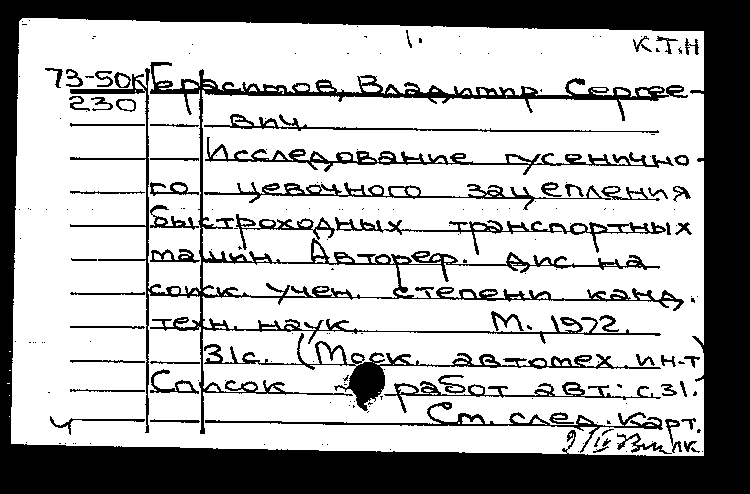 1.
К.Т.Н
73-50К Герасимов, Владимир Сергее-
230
вич.
Исследование гусенично-
го цевочного зацепления
быстроходных транспортных
машин. Автореф. дис. на
соиск. учен. степени канд.
техн. наук. М., 1972.
31с. (Моск. автомех. ин-т)
Список работ авт.: с.31.
См. след. карт.